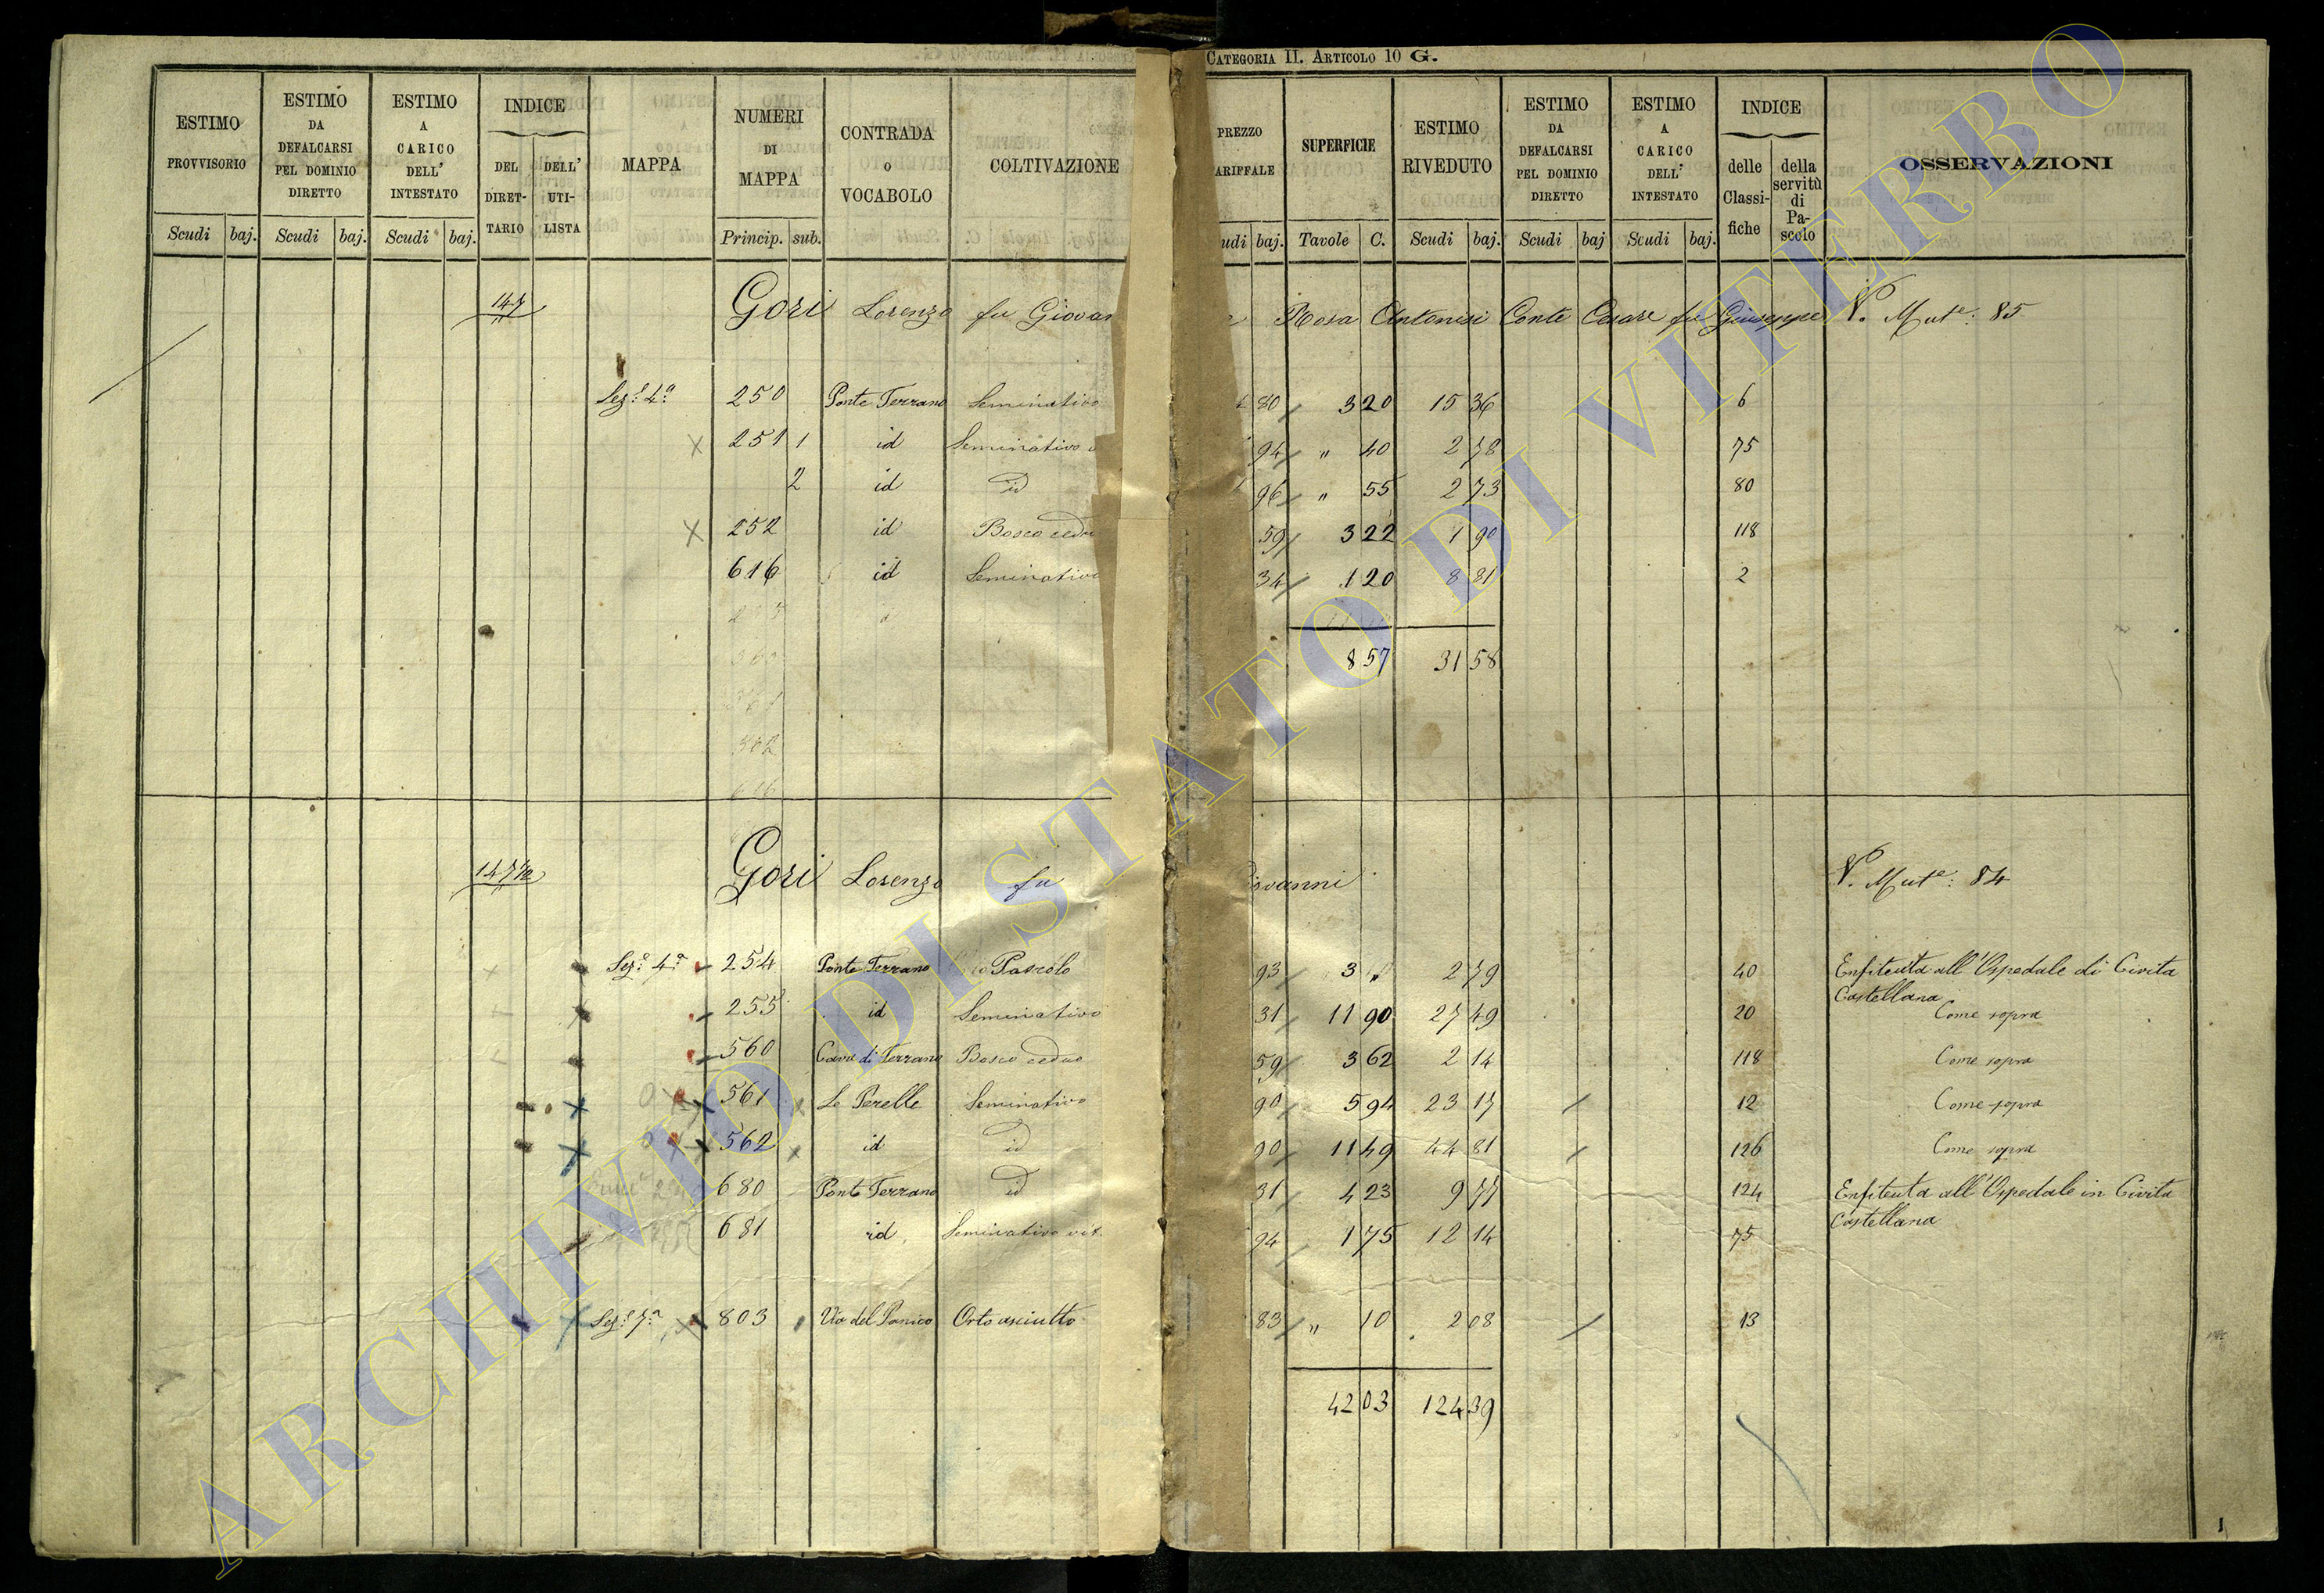 CATEGORIA II. ARTICOLO 10 G.
ESTIMO PROVVISORIO Scudi baj.
ESTIMO DA DEFALCARSI PEL DOMINIO DIRETTO Scudi baj.
ESTIMO A CARICO DELL' INTESTATO Scudi baj.
INDICE DEL DIRETTARIO DELL' UTILISTA
MAPPA
NUMERI DI MAPPA Princip. sub.
CONTRADA o VOCABOLO
COLTIVAZIONE
PREZZO ARIFFALE udi baj.
SUPERFICIE Tavole C.
ESTIMO RIVEDUTO Scudi baj.
ESTIMO DA DEFALCARSI PEL DOMINIO DIRETTO Scudi baj
ESTIMO A CARICO DELL' INTESTATO Scudi baj.
INDICE delle Classifiche della servitù di Pascolo
OSSERVAZIONI
147 Gori Lorenzo fu Giovan e Rosa Antonisi Conte Cesare fu Giuseppe N. Mut.e: 85
Sez.e 4a 250 Ponte Terrano Seminativo 80 3 20 15 36 6
251 1 id Seminativo 94 " 40 2 78 75
2 id id 96 " 55 2 73 80
252 id Bosco cedu 59 3 22 1 90 118
616 id Seminativo 34 1 20 8 81 2
8 57 31 58
147 1/2 Gori Lorenzo fu iovanni N. Mut.e: 84
Sez.e 4a 254 Ponte Terrano Pascolo 93 3 " 2 79 40 Enfiteuta all'Ospedale di Civita
Castellana
255 id Seminativo 31 11 90 27 49 20 Come sopra
560 Cava di Terrano Bosco ceduo 59 3 62 2 14 118 Come sopra
561 Le Perelle Seminativo 90 5 94 23 17 12 Come sopra
562 id id 90 11 49 44 81 126 Come sopra
680 Ponte Terrano id 31 4 23 9 77 124 Enfiteuta all'Ospedale in Civita
Castellana
681 id Seminativo vit. 94 1 75 12 14 75
Sez.e 7a 803 Via del Panico Orto asciutto 83 " 10 2 08 13
42 03 124 39
1
ARCHIVIO DI STATO DI VITERBO